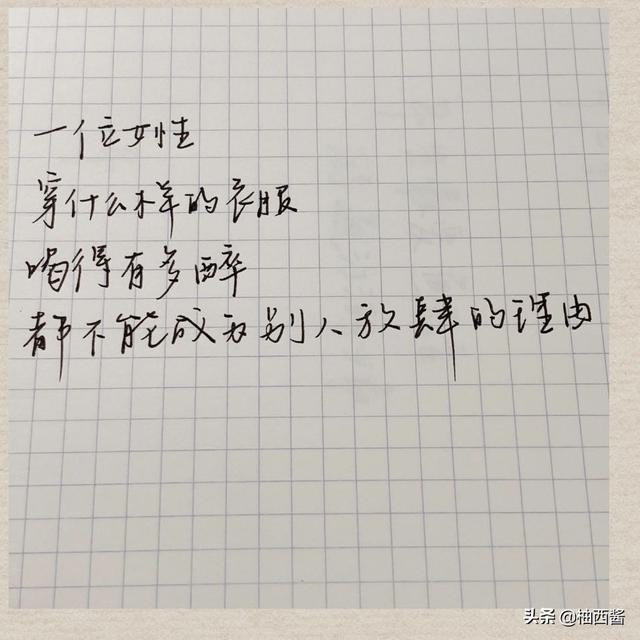 一位女性
穿什么样的衣服
喝得有多醉
都不能成为别人放肆的理由
头条 @柚西酱